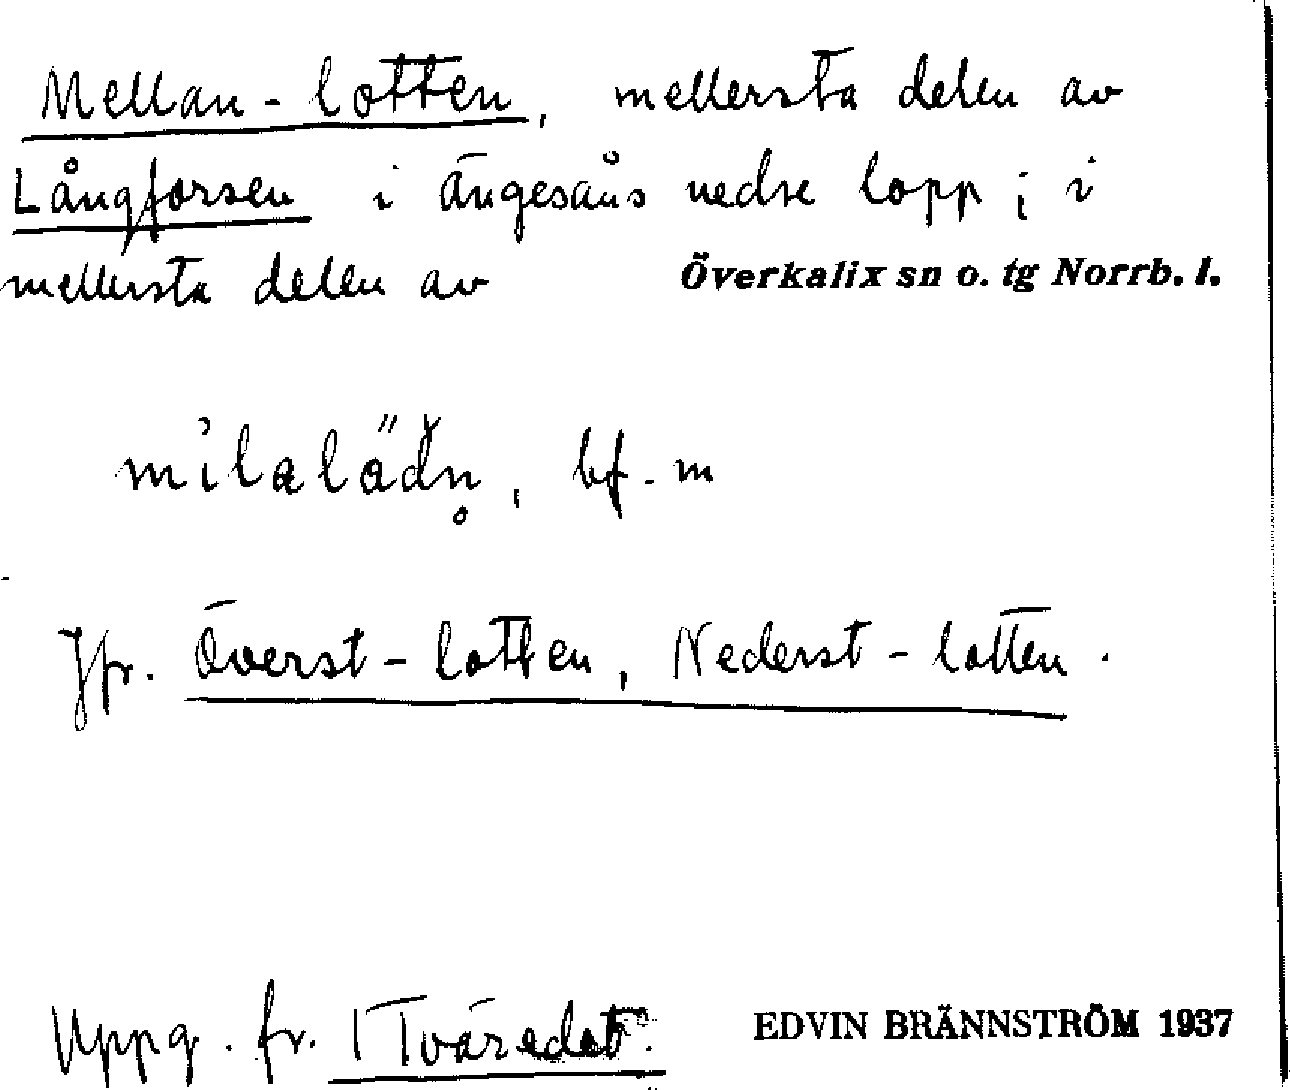 Mellan-lotten, mellersta delen av
Långforsen i Ängesåns nedre lopp ; i
mellersta delen av Överkalix sn o. tg Norrb. l.
bf. m
Jfr. Överst-lotten, Nederst-lotten.
Uppg. fr. Tväredet.
EDVIN BRÄNNSTRÖM 1937